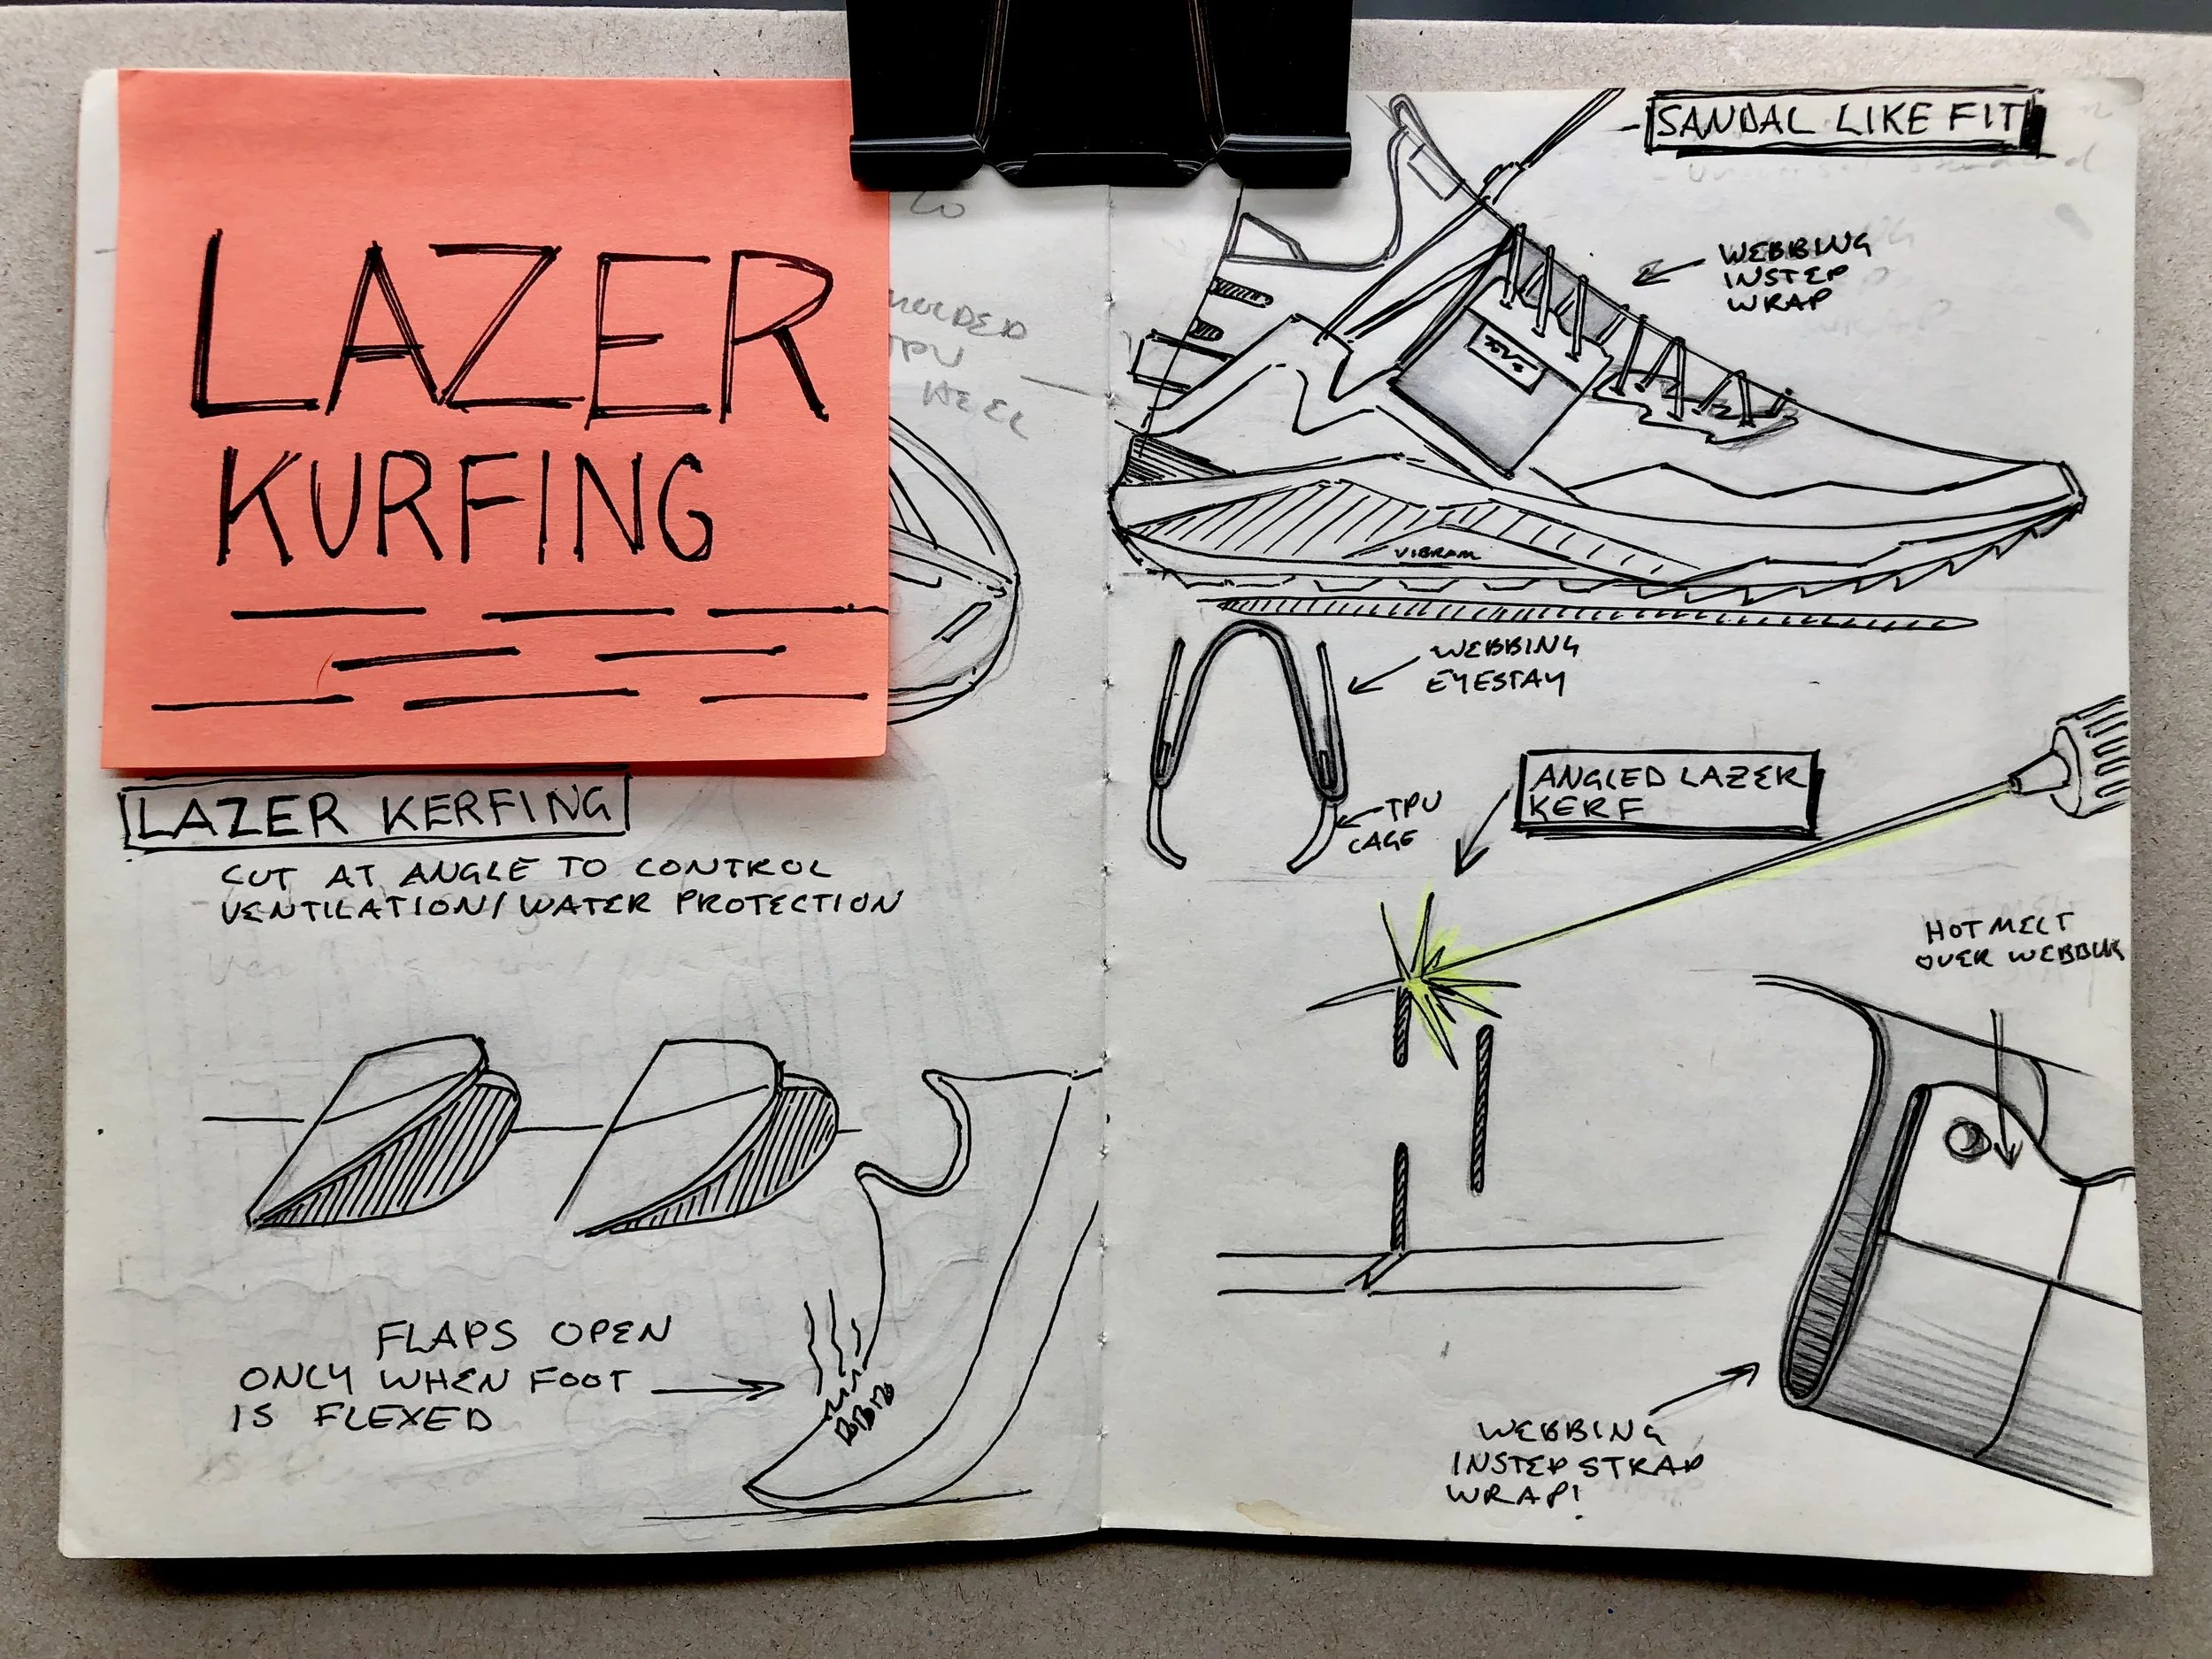 LAZER
KURFING
MOLDED
TPU
HEEL
LAZER KERFING
CUT AT ANGLE TO CONTROL
VENTILATION/WATER PROTECTION
FLAPS OPEN
ONLY WHEN FOOT
IS FLEXED
SANDAL LIKE FIT
WEBBING
INSTEP
WRAP
VIBRAM
WEBBING
EYESTAY
TPU
CAGE
ANGLED LAZER
KERF
HOT MELT
OVER
WEBBING
INSTEP STRAP
WRAP!